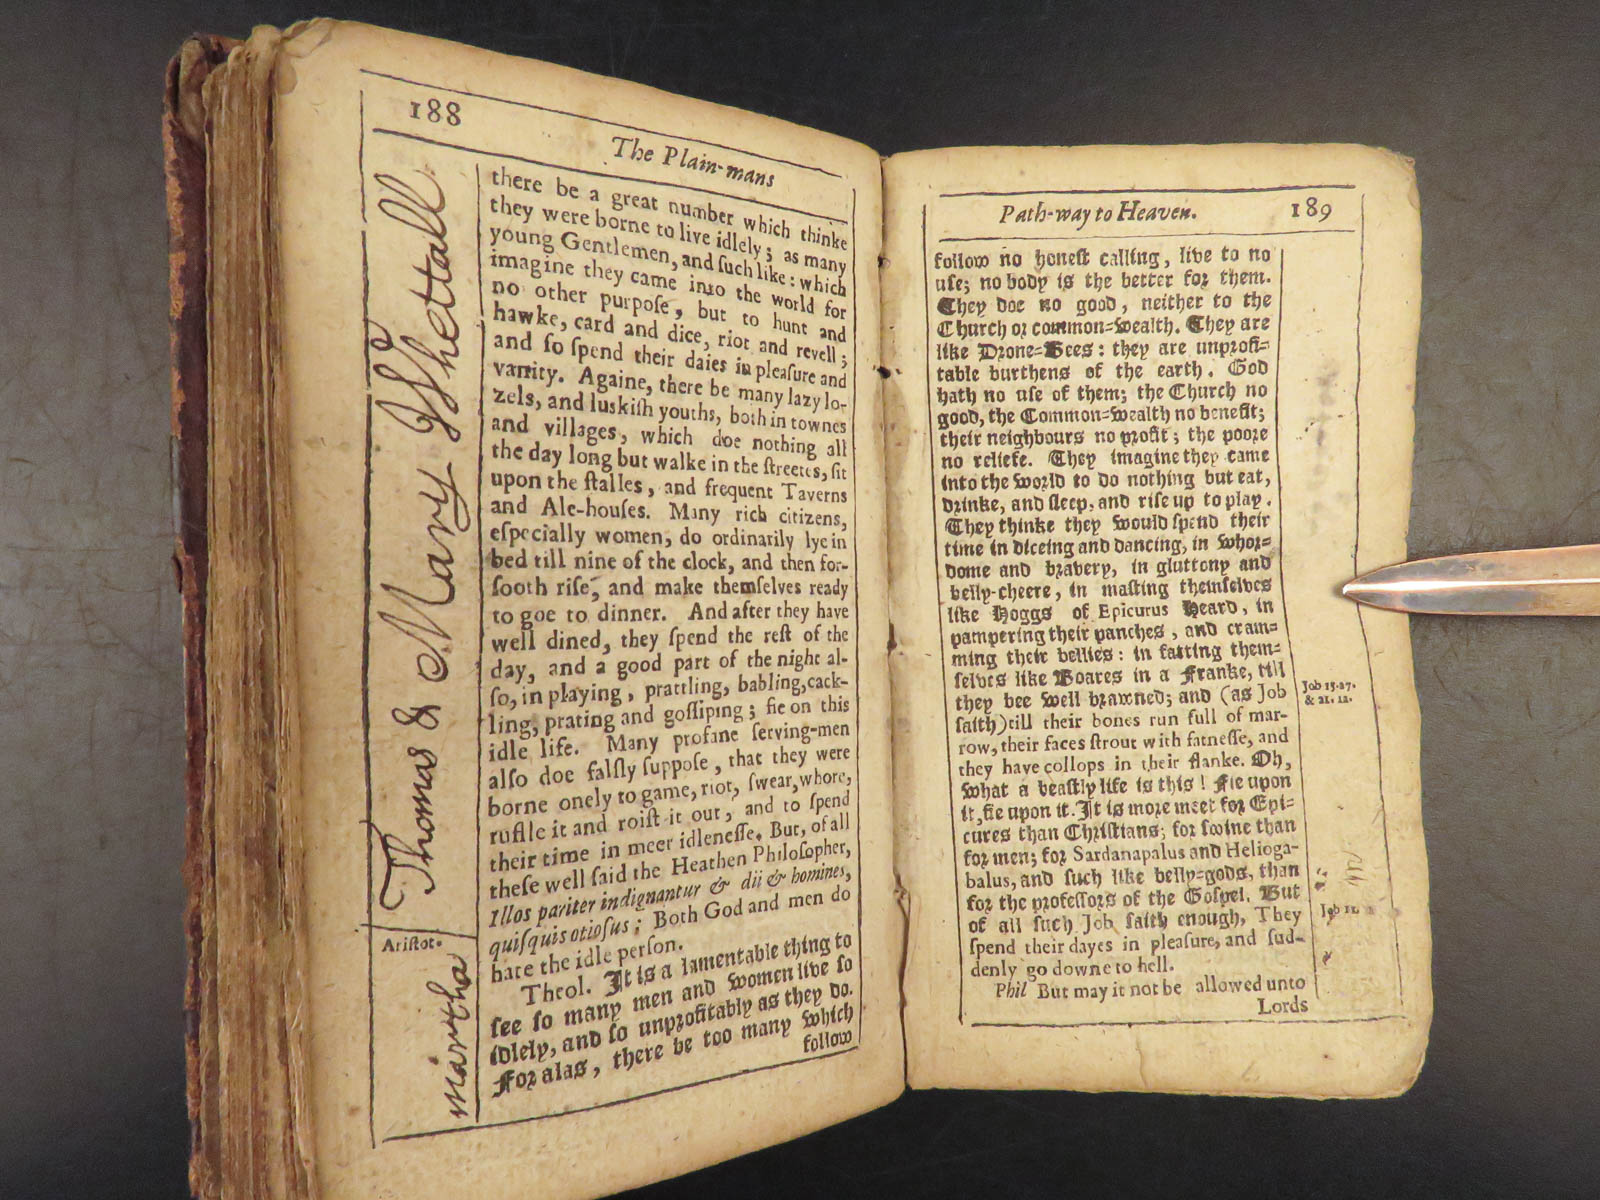 188
The Plain-mans
there be a great number which thinke
they were borne to live idlely; as many
young Gentlemen, and ſuch like: which
imagine they came into the world for
no other purpoſe, but to hunt and
hawke, card and dice, riot and revell;
and ſo ſpend their daies in pleaſure and
vanity. Againe, there be many lazy lo-
zels, and luskiſh youths, both in townes
and villages, which doe nothing all
the day long but walke in the ſtreetes, ſit
upon the ſtalles, and frequent Taverns
and Ale-houſes. Many rich citizens,
eſpecially women, do ordinarily lye in
bed till nine of the clock, and then for-
ſooth riſe, and make themſelves ready
to goe to dinner. And after they have
well dined, they ſpend the reſt of the
day, and a good part of the night al-
ſo, in playing, prattling, babling, cack-
ling, prating and goſſiping; fie on this
idle life. Many profane ſerving-men
alſo doe falſly ſuppoſe, that they were
borne onely to game, riot, ſwear, whore,
ruffle it and roiſt it out, and to ſpend
their time in meer idleneſſe. But, of all
theſe well ſaid the Heathen Philoſopher,
Illos pariter indignantur & dii & homines,
quiſquis otioſus; Both God and men do
hate the idle perſon.
Theol. It is a lamentable thing to
ſee ſo many men and women live ſo
idlely, and ſo unprofitably as they do.
For alas, there be too many which
follow
Thomas & Mary Whettall
Ariſtot.
martha
Path-way to Heaven. 189
follow no honeſt calling, live to no
uſe; no body is the better for them.
They doe no good, neither to the
Church or common-wealth. They are
like Drone-Bees: they are unprofi-
table burthens of the earth. God
hath no uſe of them; the Church no
good, the Common-wealth no benefit;
their neighbours no profit; the poore
no reliefe. They imagine they came
into the world to do nothing but eat,
drinke, and ſleep, and riſe up to play.
They thinke they would ſpend their
time in diceing and dancing, in whor-
dome and bravery, in gluttony and
belly-cheere, in maſting themſelves
like Hoggs of Epicurus Heard, in
pampering their panches, and cram-
ming their bellies: in fatting them-
ſelves like Boares in a Franke, till
they bee well brawned; and (as Job
ſaith) till their bones run full of mar-
row, their faces ſtrout with fatneſſe, and
they have collops in their flanke. Oh,
what a beaſtly life is this! Fie upon
it, fie upon it. It is more meet for Epi-
cures than Chriſtians; for ſwine than
for men; for Sardanapalus and Helioga-
balus, and ſuch like belly-gods, than
for the profeſſors of the Goſpel. But
of all ſuch Job ſaith enough, They
ſpend their dayes in pleaſure, and ſud-
denly go downe to hell.
Phil But may it not be allowed unto
Lords
Job 15.27.
& 21. 12.
Job